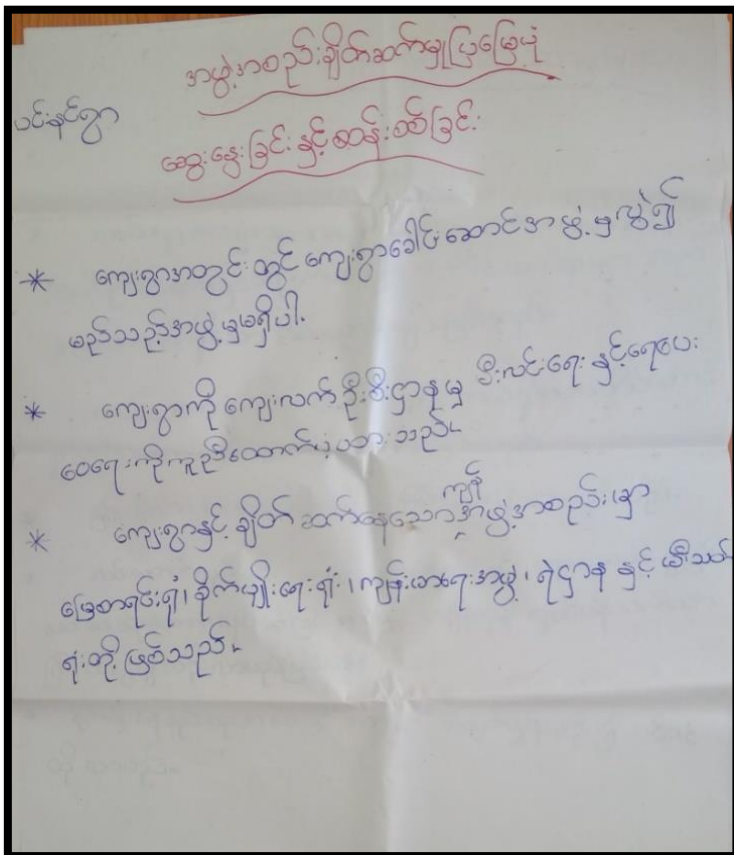 အဖွဲ့အစည်းချိတ်ဆက်မှုပြမြေပုံ
ပင်းနင်ရွာ
ဆွေးနွေးခြင်းနှင့်ဆန်းစစ်ခြင်း
* ကျေးရွာအတွင်းတွင် ကျေးရွာခေါင်းဆောင်အဖွဲ့မှလွဲ၍
မည်သည့်အဖွဲ့မှမရှိပါ။
* ကျေးရွာကို ကျေးလက်ဦးစီးဌာနမှ မီးလင်းရေးနှင့်ရေပေး
ဝေရေးကိုကူညီထောက်ပံ့ပေးသည်။
* ကျေးရွာနှင့် ချိတ်ဆက်နေသော ကျန် အဖွဲ့အစည်းမှာ
မြေစာရင်းရုံး၊ စိုက်ပျိုးရေးရုံး၊ ကျန်းမာရေးအဖွဲ့၊ ရဲဌာန နှင့်
ရုံးတို့ဖြစ်သည်။